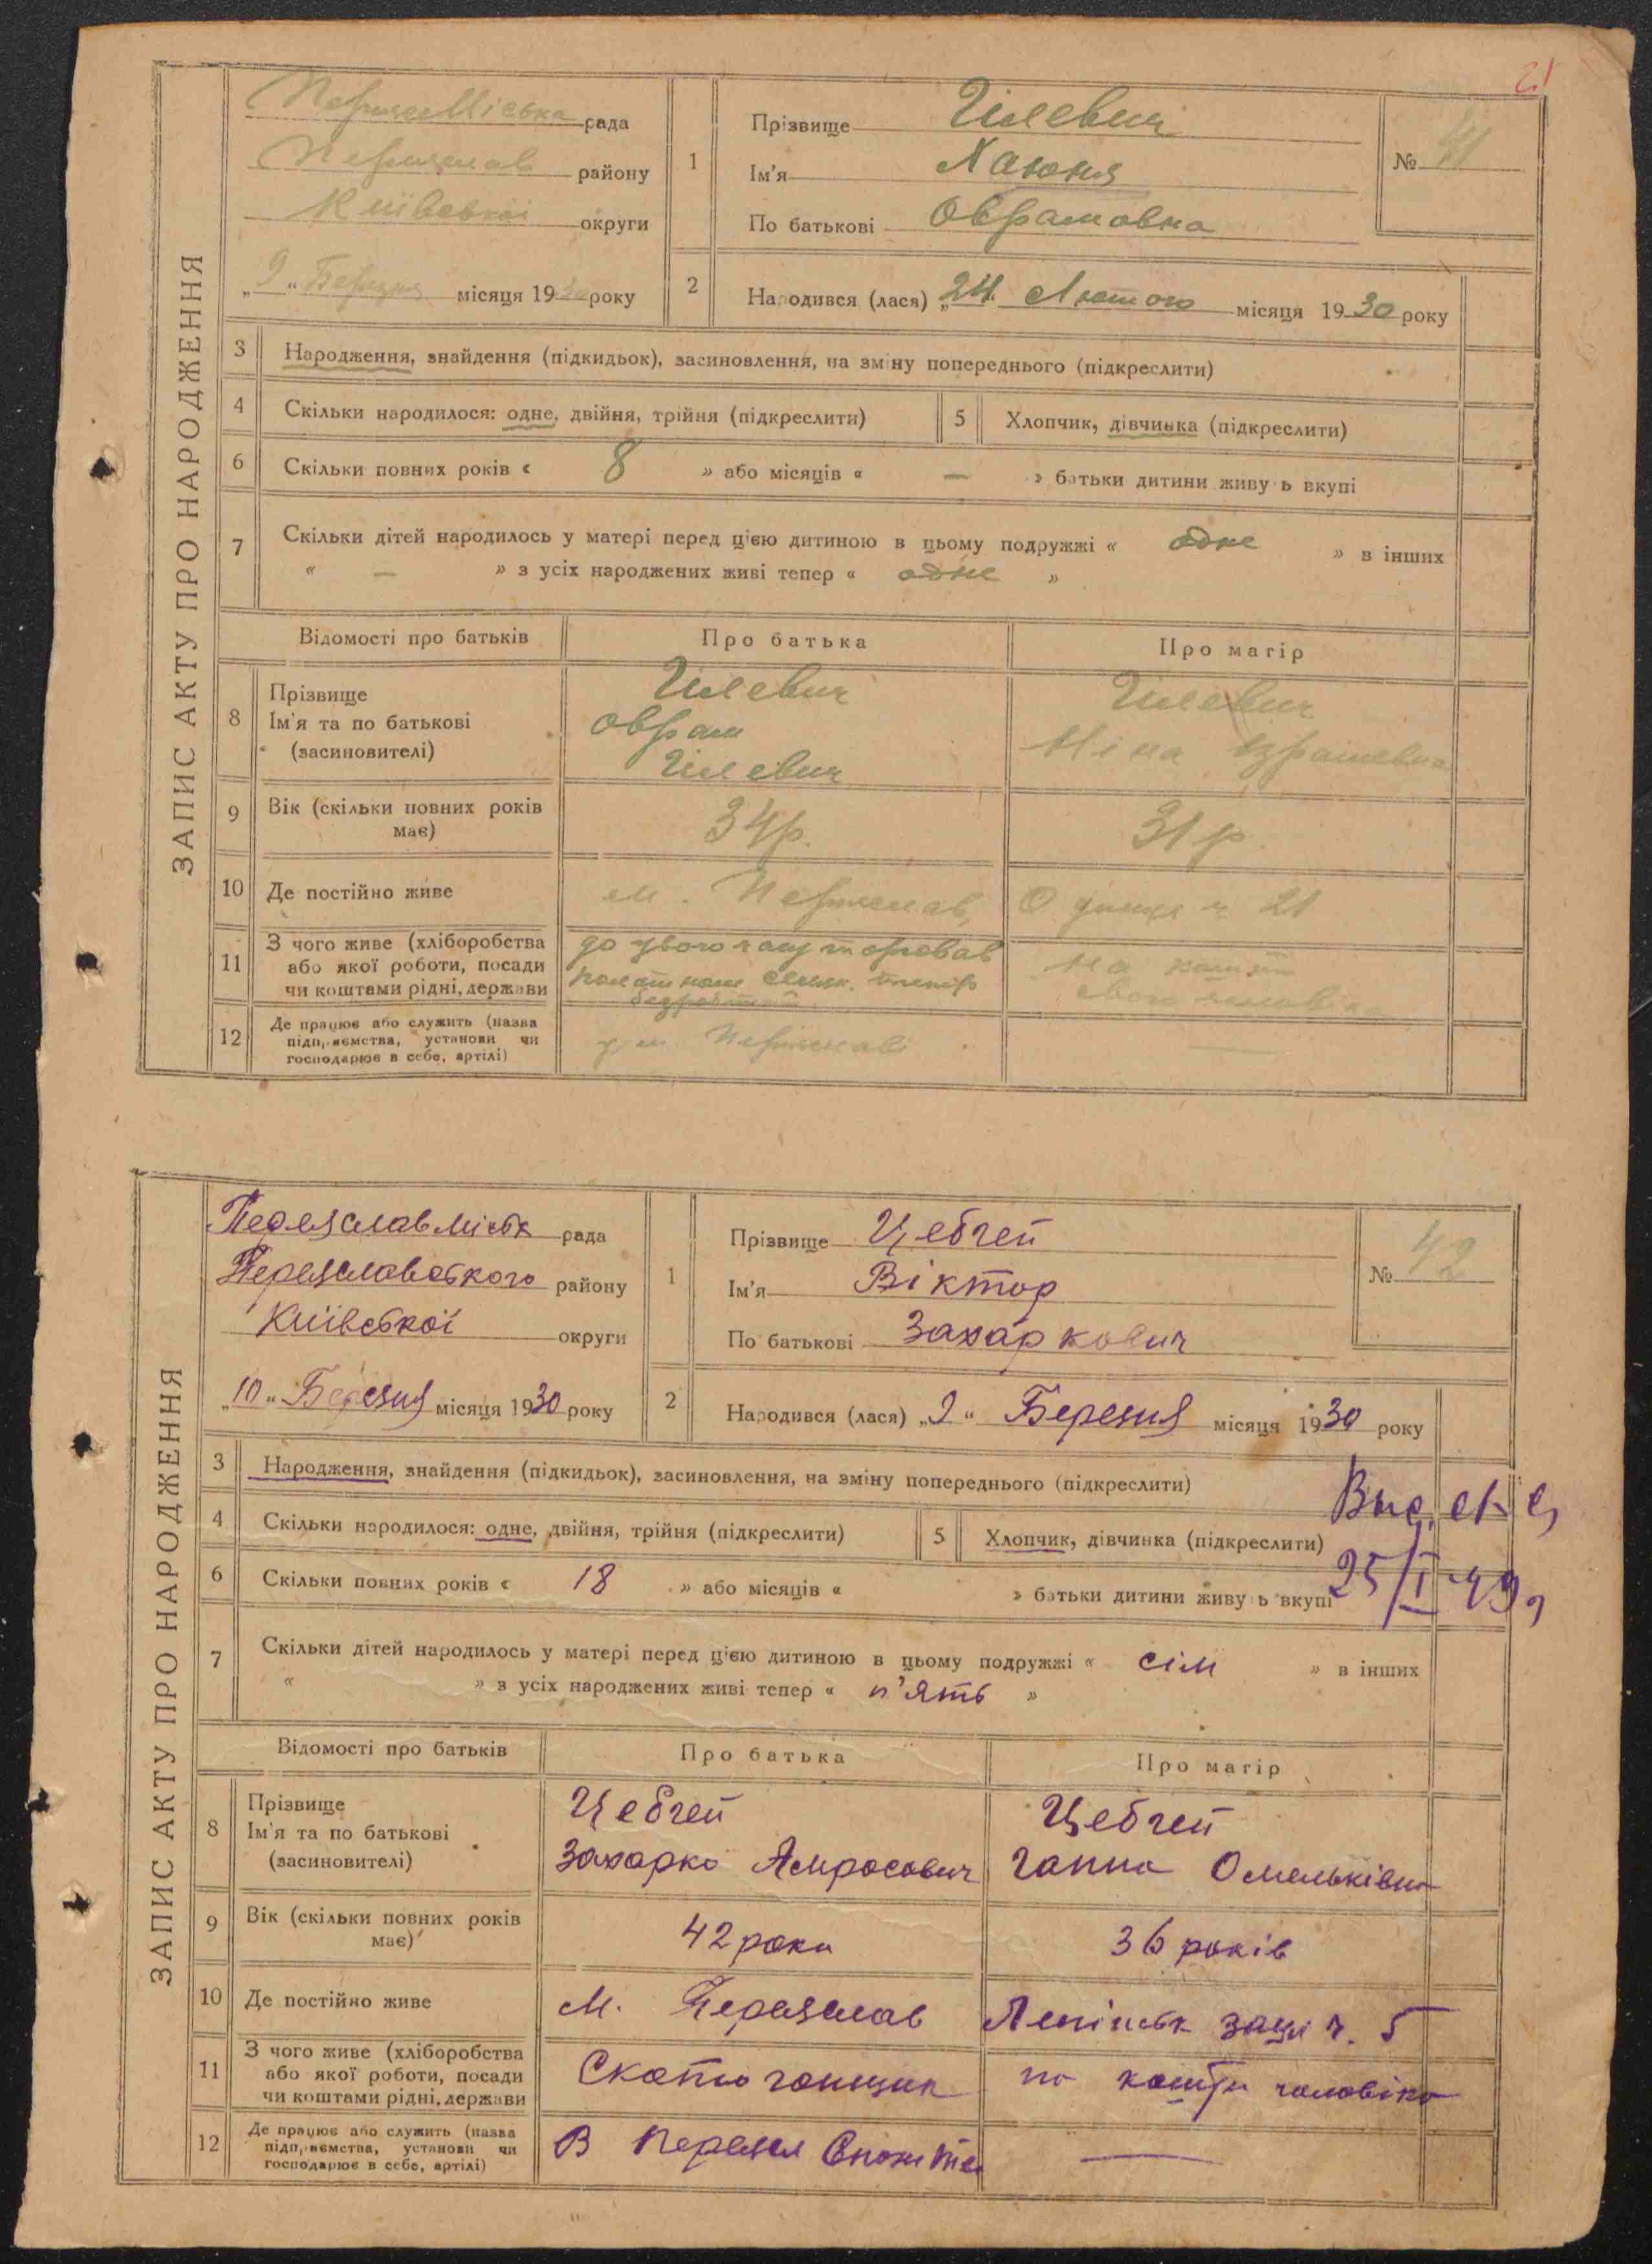 21
ЗАПИС АКТУ ПРО НАРОДЖЕННЯ
Міська рада
Переяслав району
Київської округи
„9“ Березня місяця 1930 року
1
Прізвище Гілевич
Ім'я Хаюня
По батькові Оврамовна
№ 41
2
Народився (лася) „24“ Лютого місяця 1930 року
3 Народження, знайдення (підкидьок), засиновлення, на зміну попереднього (підкреслити)
4 Скільки народилося: одне, двійня, трійня (підкреслити)
5 Хлопчик, дівчинка (підкреслити)
6 Скільки повних років « 8 » або місяців « — » батьки дитини живуть вкупі
7 Скільки дітей народилось у матері перед цією дитиною в цьому подружжі « одне » в інших
« — » з усіх народжених живі тепер « одне »
Відомості про батьків Про батька Про матір
8 Прізвище Гілевич Гілевич
Ім'я та по батькові Оврам Ніна
(засиновителі) Гілевич
9 Вік (скільки повних років має) 34 р. 31 р.
10 Де постійно живе м. Переяслав, 21
11 З чого живе (хліборобства або якої роботи, посади чи коштами рідні, держави до цього часу торговав тепер безробітний на кошти свого чоловіка
12 Де працює або служить (назва підприємства, установи чи господарює в себе, артілі) у м. Переяславі —
ЗАПИС АКТУ ПРО НАРОДЖЕННЯ
Переяславміськ рада
Переяславського району
Київської округи
„10“ Березня місяця 1930 року
1
Прізвище Цебгей
Ім'я Віктор
По батькові Захаркович
№ 42
2
Народився (лася) „9“ Березня місяця 1930 року
3 Народження, знайдення (підкидьок), засиновлення, на зміну попереднього (підкреслити)
4 Скільки народилося: одне, двійня, трійня (підкреслити)
5 Хлопчик, дівчинка (підкреслити)
6 Скільки повних років « 18 » або місяців « » батьки дитини живуть вкупі
25/I-49
7 Скільки дітей народилось у матері перед цією дитиною в цьому подружжі « сім » в інших
« » з усіх народжених живі тепер « п'ять »
Відомості про батьків Про батька Про матір
8 Прізвище Цебгей Цебгей
Ім'я та по батькові Захарко Амросович Ганна Омельківна
(засиновителі)
9 Вік (скільки повних років має) 42 роки 36 років
10 Де постійно живе м. Переяслав Ленінськ заул ч. 5
11 З чого живе (хліборобства або якої роботи, посади чи коштами рідні, держави Скотогонщик на кошти чоловіка
12 Де працює або служить (назва підприємства, установи чи господарює в себе, артілі) В Переясл —